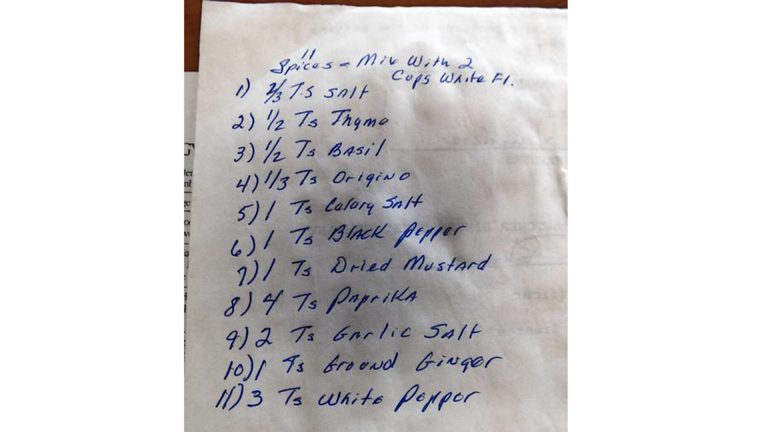 11
Spices - Mix With 2
Cups White Fl.
1) 2/3 Ts Salt
2) 1/2 Ts Thyme
3) 1/2 Ts Basil
4) 1/3 Ts Origino
5) 1 Ts Celary Salt
6) 1 Ts Black Pepper
7) 1 Ts Dried Mustard
8) 4 Ts Paprika
9) 2 Ts Garlic Salt
10) 1 Ts Ground Ginger
11) 3 Ts White Pepper